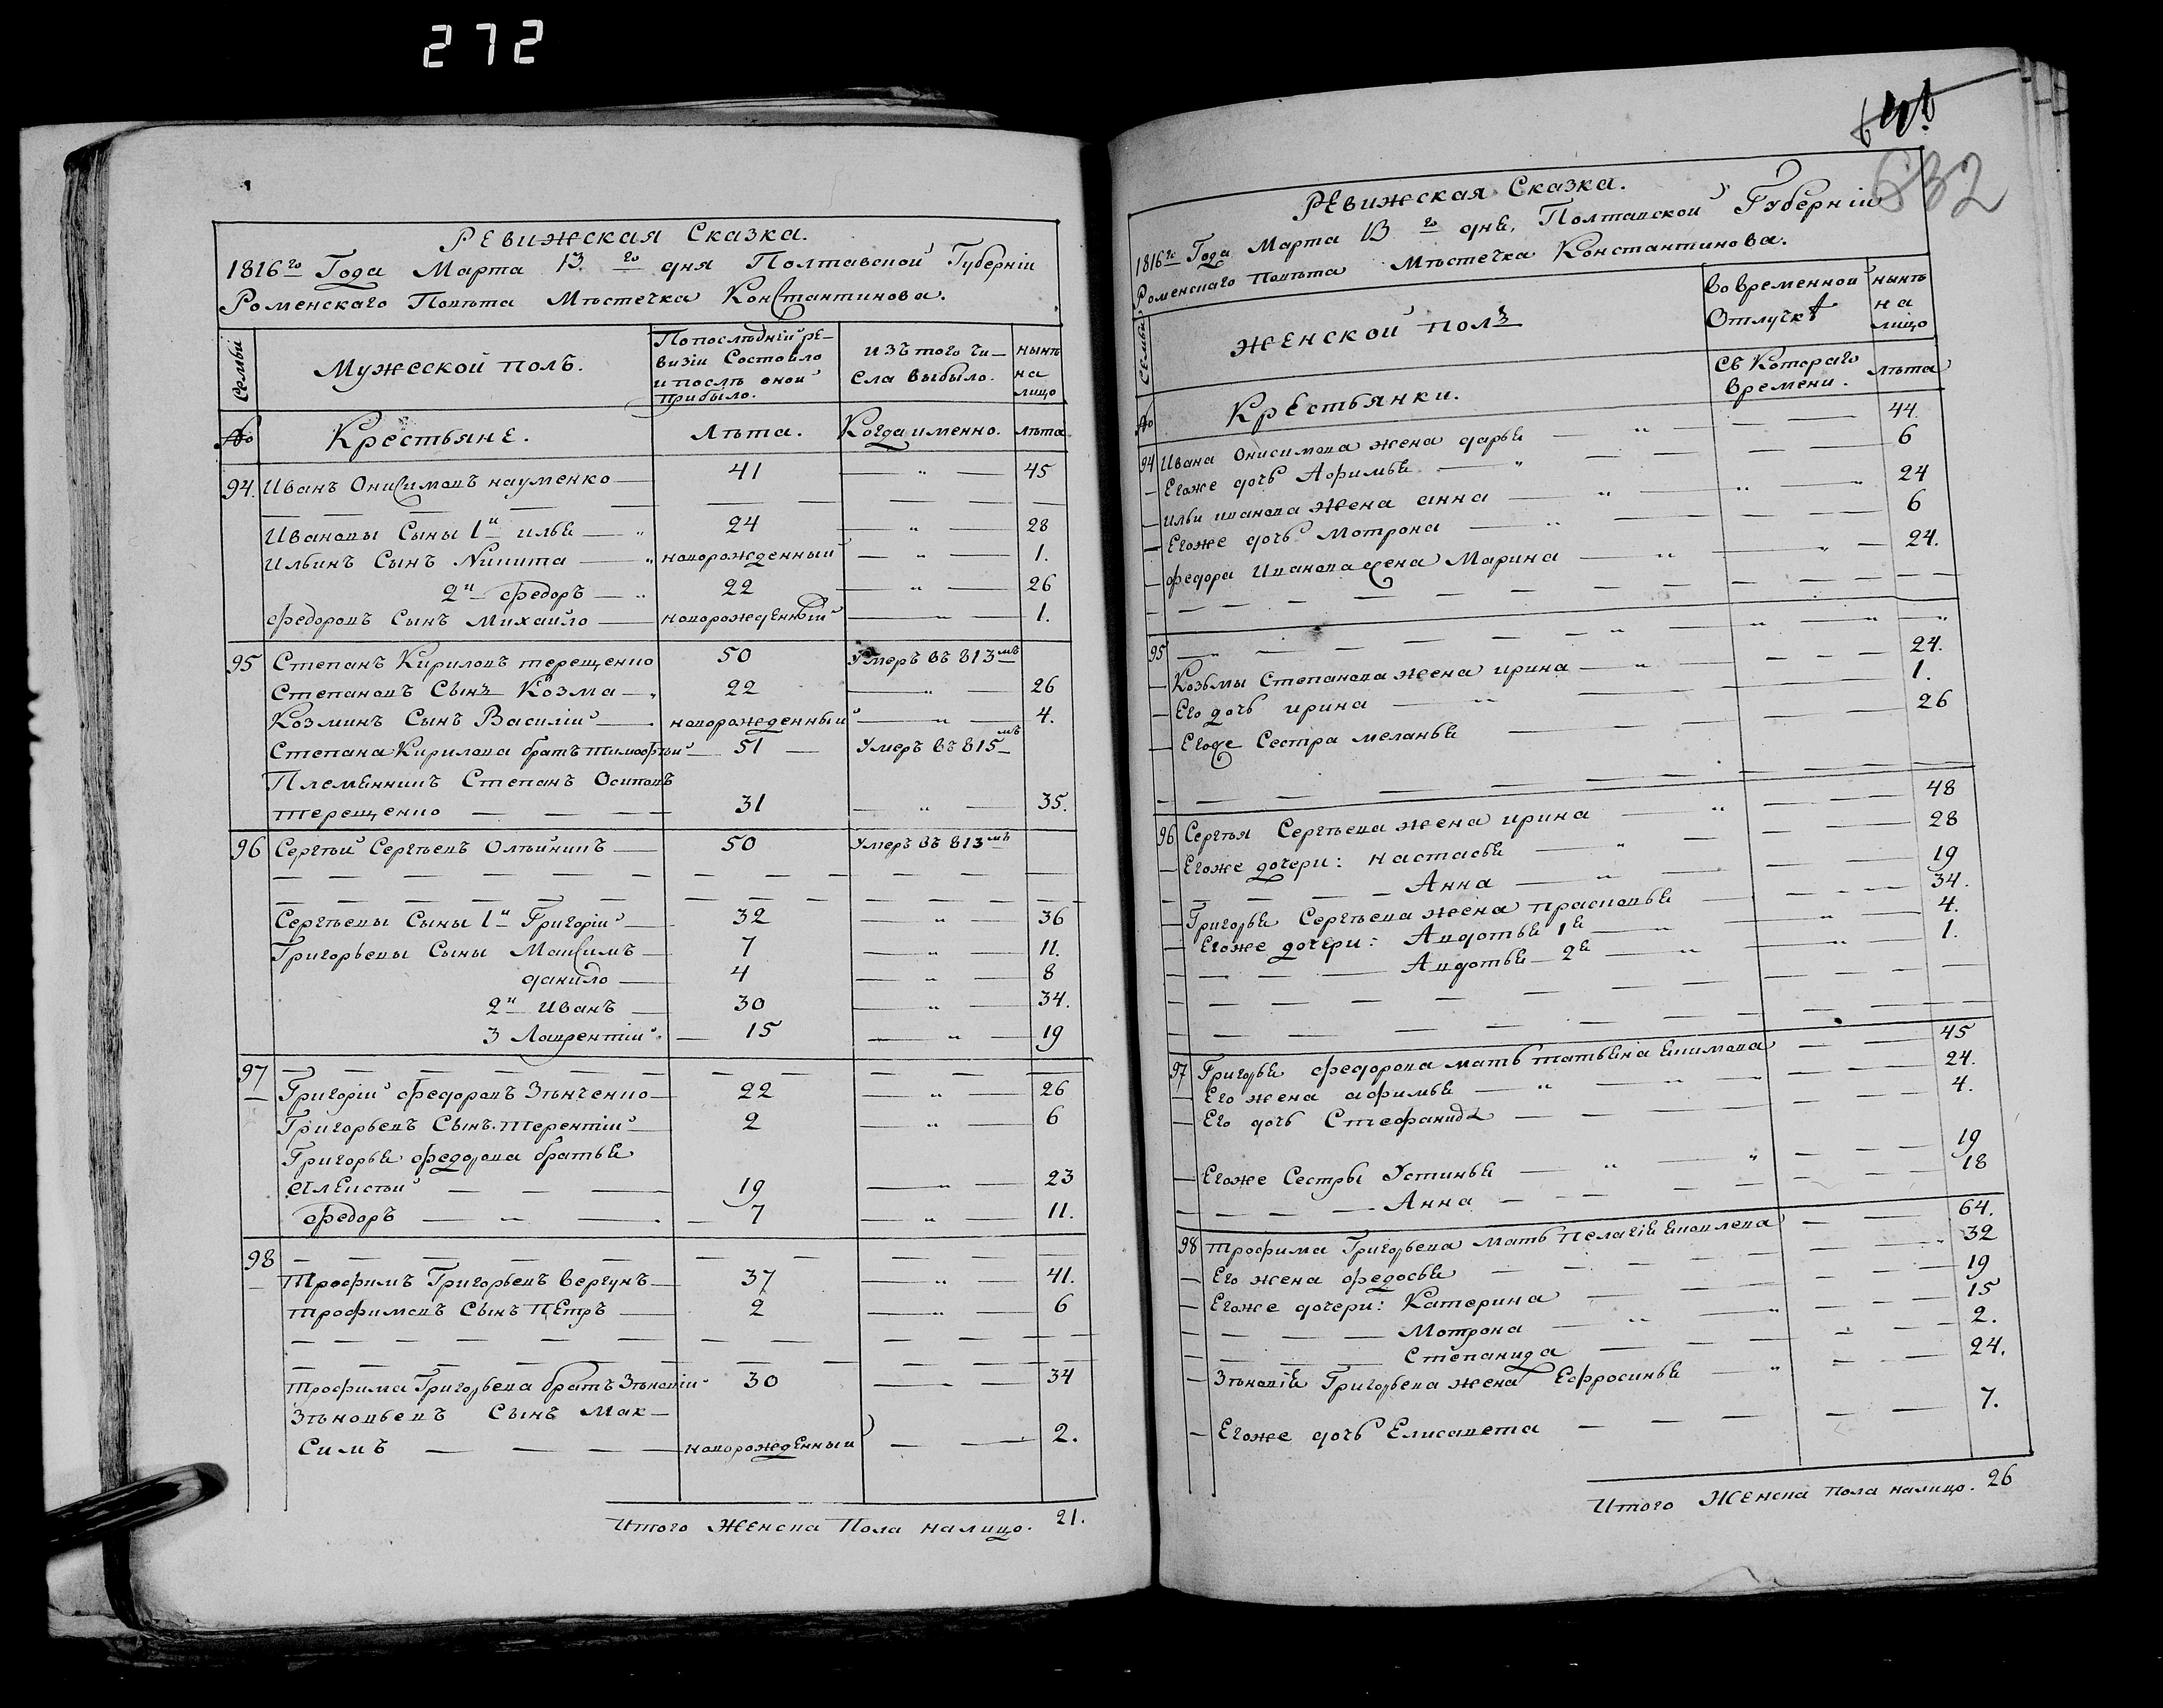 272
Ревижская Сказка.
1816го Года Марта 13го дня Полтавской Губерніи
Роменскаго Повѣта Мѣстечка Константинова.
Семьи
Мужеской полъ.
По послѣдній ре-
визіи Состояло
и послѣ оной
прибыло.
изъ того чи-
сла выбыло.
нынѣ
на
лицо
№ Крестьяне. Лѣта. Когда именно. лѣта
94. Иванъ Онисимовъ науменко — 41 — „ — 45
Ивановы Сыны 1й илья — „ 24 — „ — 28
Ильинъ Сынъ Никита — „ новорожденный — „ — 1.
2й федоръ — „ 22 — „ — 26
федоровъ Сынъ Михайло — новорожденный — „ — 1.
95 Степанъ Кириловъ терещенко 50 Умеръ въ 813мъ
Степановъ Сынъ Козма — „ 22 — „ — 26
Козминъ Сынъ Василій — новорожденный — „ — 4.
Степана Кирилова братъ тимофѣй — 51 — Умеръ въ 815мъ
Племенникъ Степанъ Осиповъ
терещенко — — — 31 — „ — 35.
96 Сергѣй Сергѣевъ Олѣйникъ — 50 Умеръ въ 813мъ
Сергѣевы Сыны 1й Григорій — 32 — „ — 36
Григорьевы Сыны Максимъ — 7 — „ — 11.
данило — 4 — „ — 8
2й Иванъ — 30 — „ — 34.
3 Лаврентій — 15 — „ — 19
97 — — — — — —
Григорій федоровъ Зѣнченко — 22 — „ — 26
Григорьевъ Сынъ терентій — 2 — „ — 6
Григорья федорова братья
Алексѣй — — — 19 — „ — 23
федоръ — „ — 7 — „ — 11.
98 — — — — — —
Трофимъ Григорьевъ вергунъ — 37 — „ — 41.
трофимовъ Сынъ Петръ — 2 — „ — 6
трофима Григорьева братъ Зѣновій 30 — — — 34
Зѣновьевъ Сынъ Мак-
симъ — — — — новорожденный — — 2.
Итого Женска Пола налицо. 21.
632
Ревижская Сказка.
1816го Года Марта 13го дня, Полтавской Губерніи
Роменскаго Повѣта Мѣстечка Константинова.
Семьи
женской полъ
во временной
Отлучкѣ
нынѣ
на
лицо
Съ Котораго
времени.
лѣта
№ Крестьянки.
94 Ивана Онисимова жена дарья — „ — — 44.
— Егоже дочь Афимья — „ — — 6
— ильи иванова жена анна — „ — „ — „ 24
— Егоже дочь Мотрона — „ — — 6
— федора Иванова жена Марина — „ — „ — 24.
95 — — — — „ — „ — „
— Козьмы Степанова жена ирина — „ — — 24.
— Его дочь ирина — „ — — 1.
— Егоже Сестра меланья — — — 26
96 Сергѣя Сергѣева жена ирина — „ — — 48
— Егоже дочери: настасья — „ — — 28
— — — Анна — „ — — 19
— Григорья Сергѣева жена прасковья — — — 34.
— Егоже дочери: Авдотья 1я — „ — „ — 4.
— — — Авдотья — 2я — „ — „ — 1.
97 Григорья федорова мать татьяна Екимова — — 45
— Его жена афимья — „ — „ — 24.
— Его дочь Стефанида — — — 4.
— Егоже Сестры Устинья — „ — „ — 19
— — — Анна — — — 18
98 трофима Григорьева мать пелагія яковлева — — 64.
— Его жена федосья — — — 32
— Егоже дочери: Катерина — — — 19
— — — Мотрона — „ — „ — 15
— — — Степанида — — — 2.
— Зѣновія Григорьева жена Ефросинья — „ — — 24.
— Егоже дочь Елисавета — — — 7.
Итого Женска Пола налицо. 26